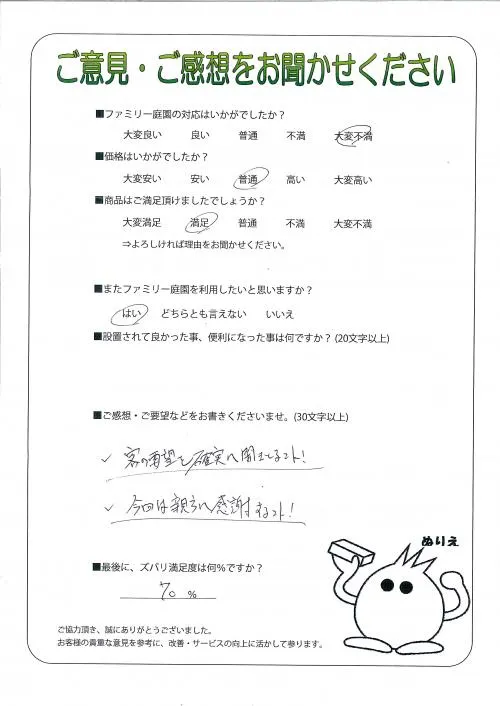 ご意見・ご感想をお聞かせください
■ファミリー庭園の対応はいかがでしたか？
大変良い 良い 普通 不満 大変不満
■価格はいかがでしたか？
大変安い 安い 普通 高い 大変高い
■商品はご満足頂けましたでしょうか？
大変満足 満足 普通 不満 大変不満
⇒よろしければ理由をお聞かせください。
■またファミリー庭園を利用したいと思いますか？
はい どちらとも言えない いいえ
■設置されて良かった事、便利になった事は何ですか？(20文字以上)
■ご感想・ご要望などをお書きくださいませ。(30文字以上)
✓ 客の要望を確実に聞きとるコト!
✓ 今回は親方に感謝するコト!
ぬりえ
■最後に、ズバリ満足度は何％ですか？
70 %
ご協力頂き、誠にありがとうございました。
お客様の貴重な意見を参考に、改善・サービスの向上に活かして参ります。